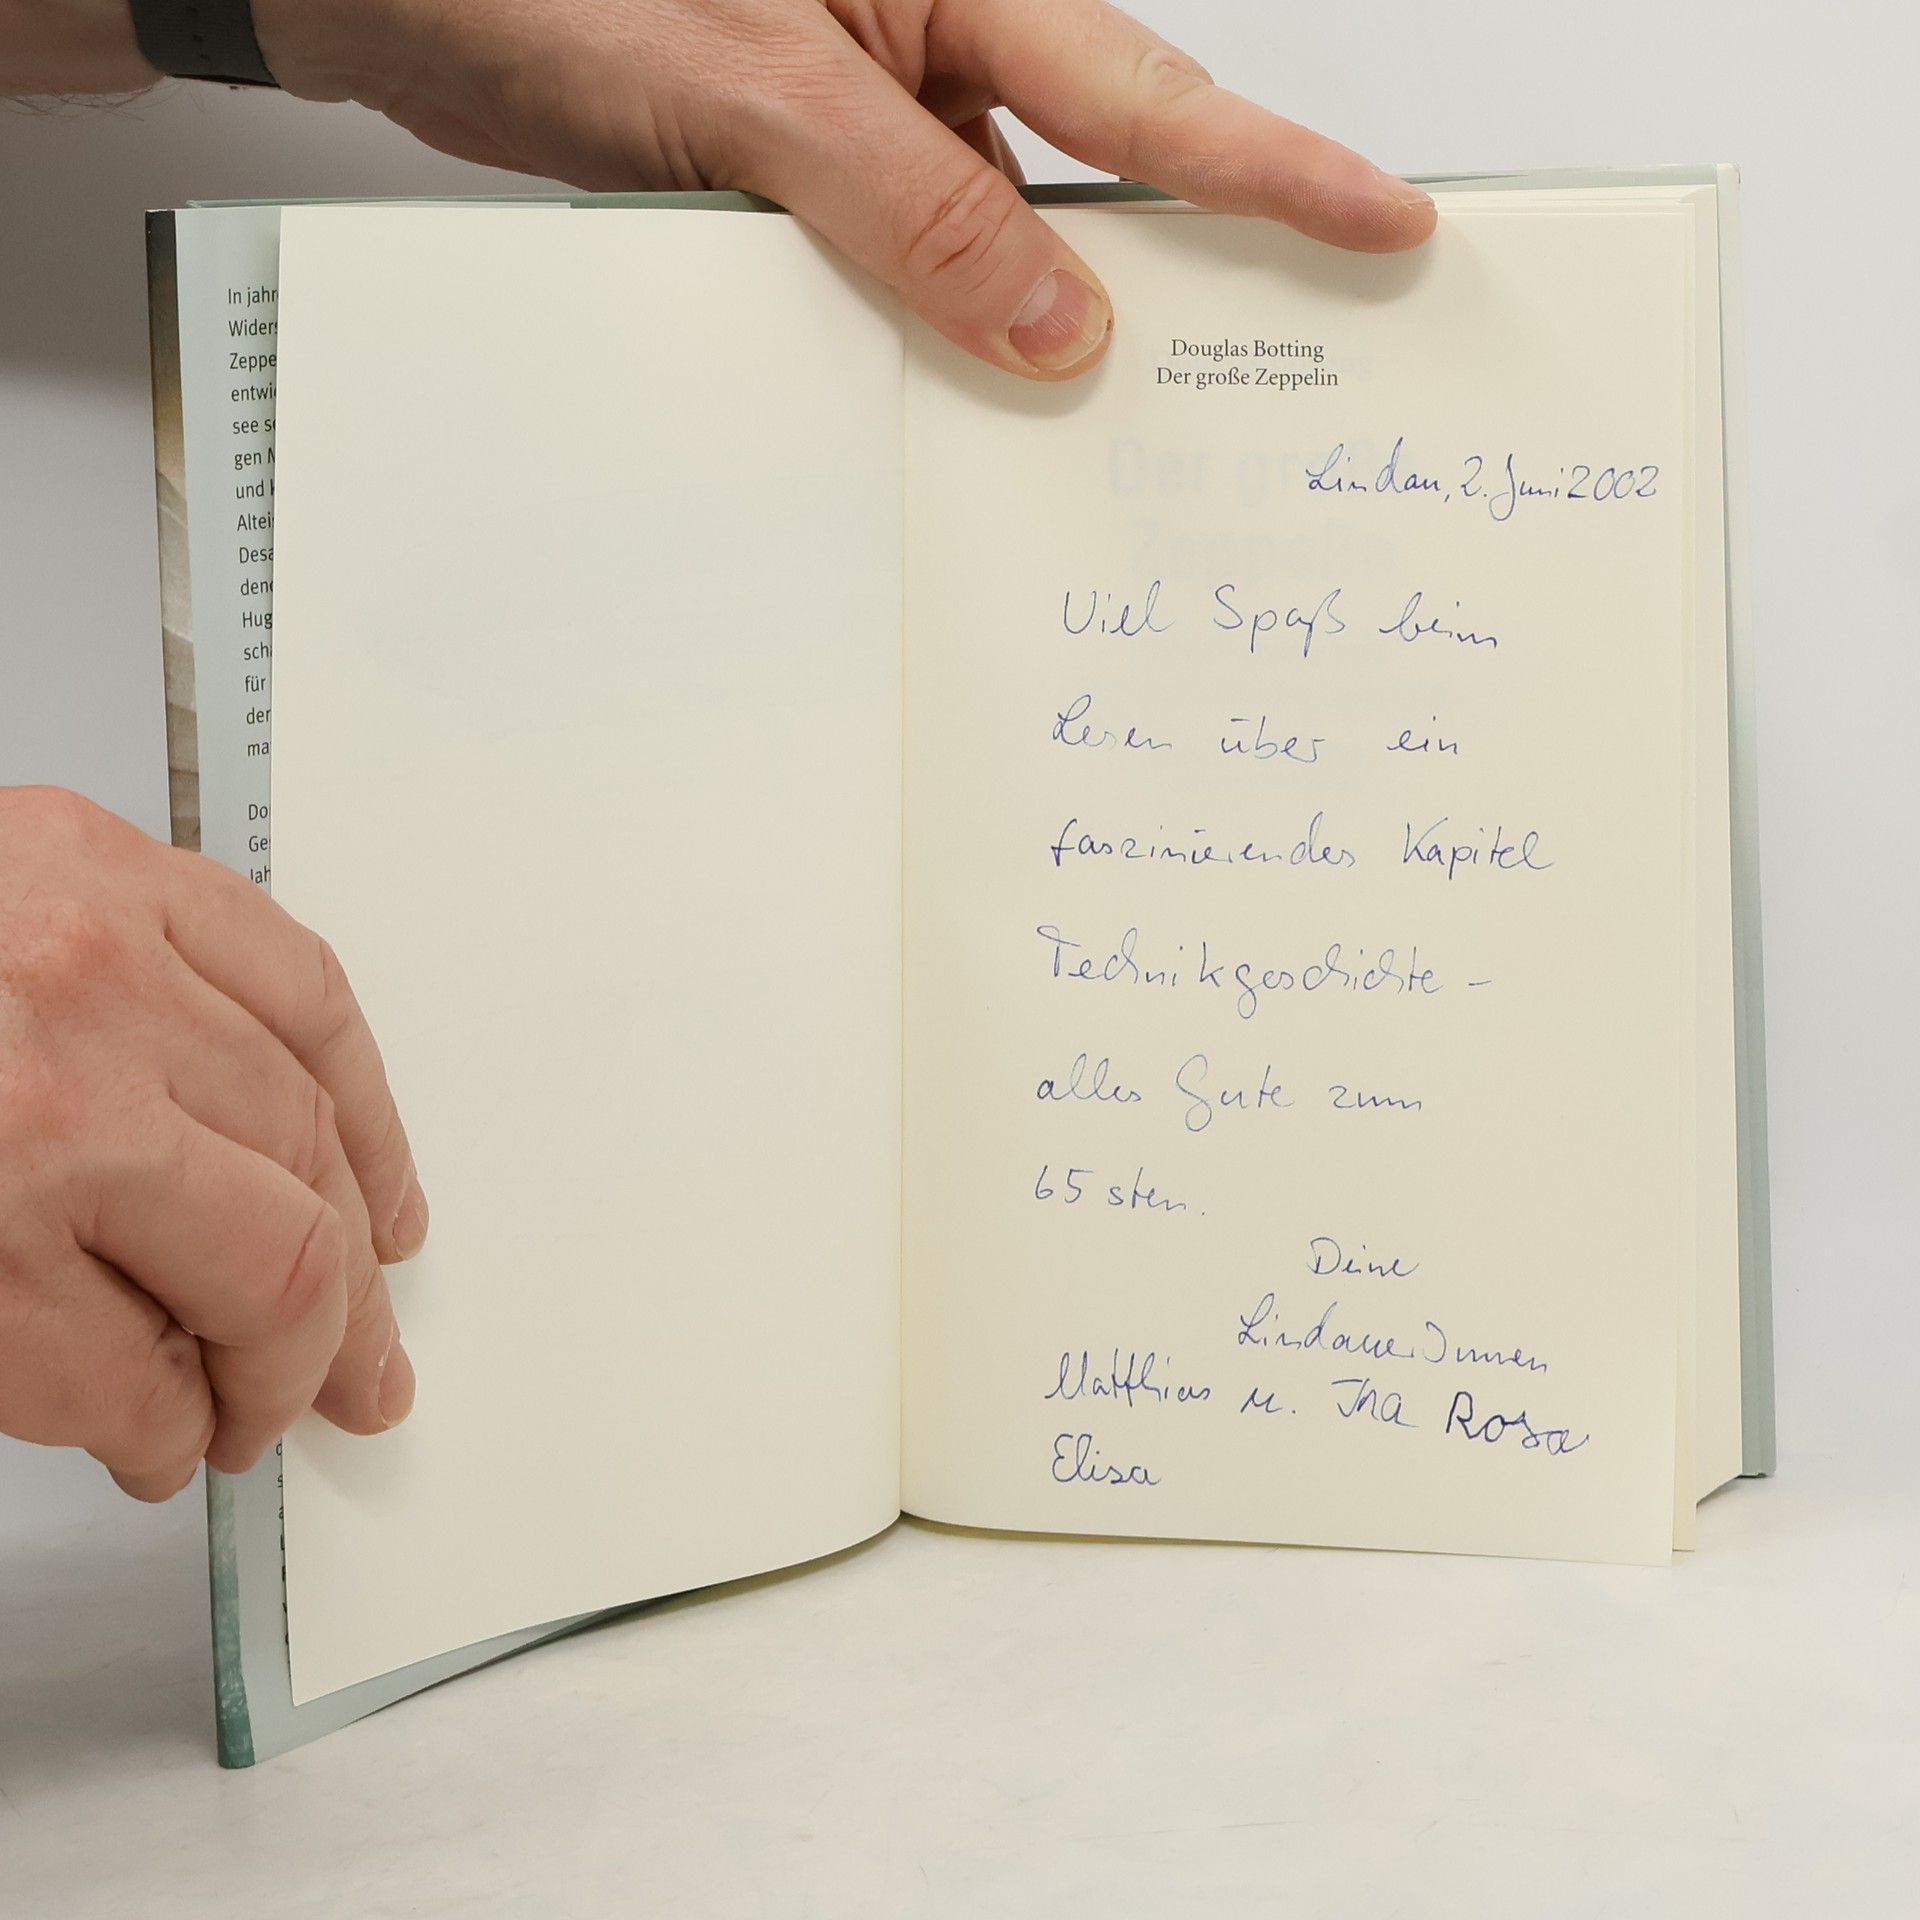 In jahr
Widers
Zeppe
entwi
see s
gen
und
Altei
Desa
den
Hug
sch
für
der
ma
Do
Ge
Jah
Douglas Botting
Der große Zeppelin
Lindau, 2. Juni 2002
Viel Spaß beim
Lesen über ein
faszinierendes Kapitel
Technikgeschichte –
alles Gute zum
65sten.
Deine
LindauerInnen
Matthias u. Ina Rosa
Elisa